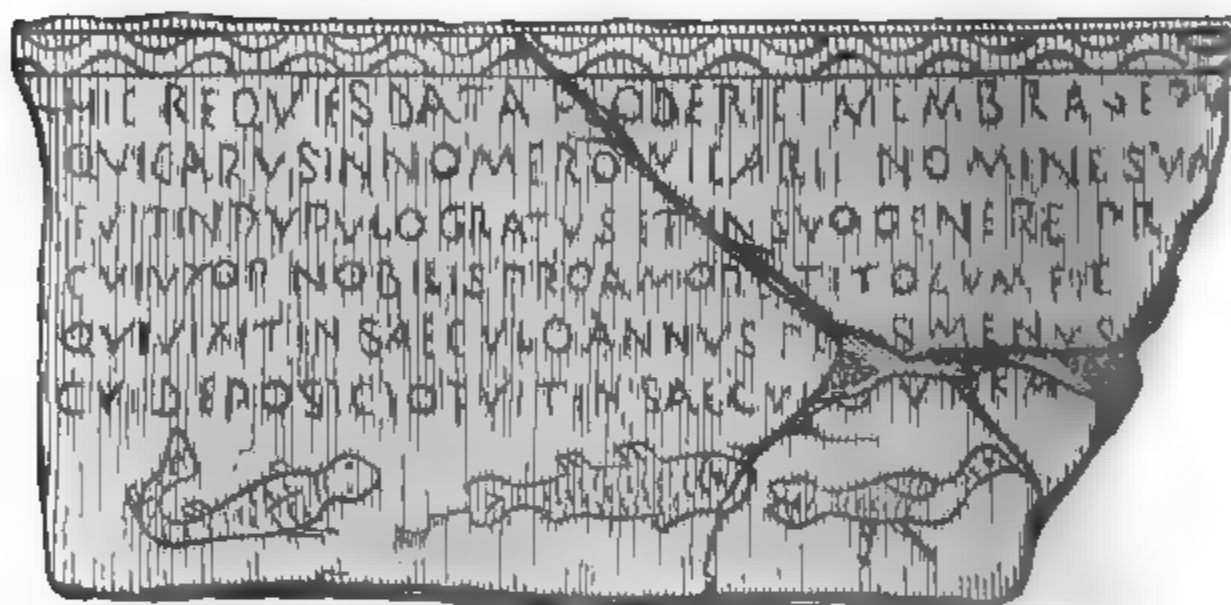 HIC REQVIES DATA HLODERICI MEMBRA SEP
QVI CARVS IN NOMERO VILARII NOMINE SVM
FVIT IN PVPVLO GRATVS ET IN SVO GENERE PR
CVI VXOR NOBILIS PRO AMORE TITOLVM FIE
QVI VIXIT IN SAECVLO ANNVS MENVS
CVI DEPOSICIO FVIT IN SAECV